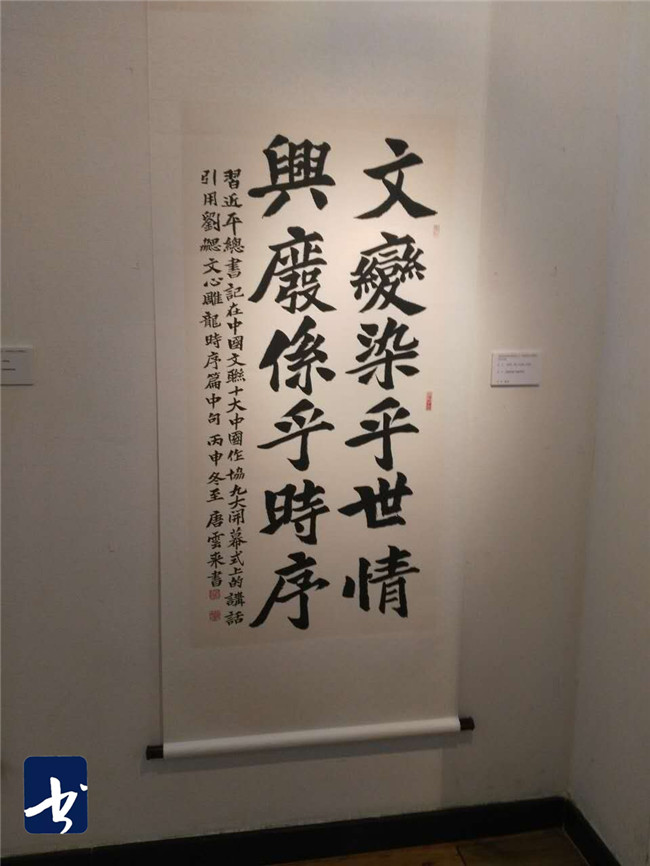 文變染乎世情
興廢係乎時序
習近平總書記在中國文聯十大中國作協九大開幕式上的講話
引用劉勰文心雕龍時序篇中句 丙申冬至 唐雲來書